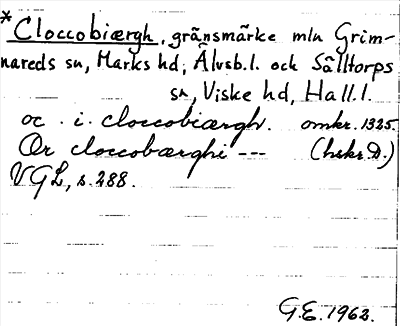 *Cloccobiærgh, gränsmärke mln Grim-
nareds sn, Marks hd, Älvsb.l. och Sälltorps
sn, Viske hd, Hall.l.
oc . i. cloccobiærgh. omkr. 1325.
Ær cloccobærghi --- (hskr. D.)
VGL, s. 288.
G.E. 1962.